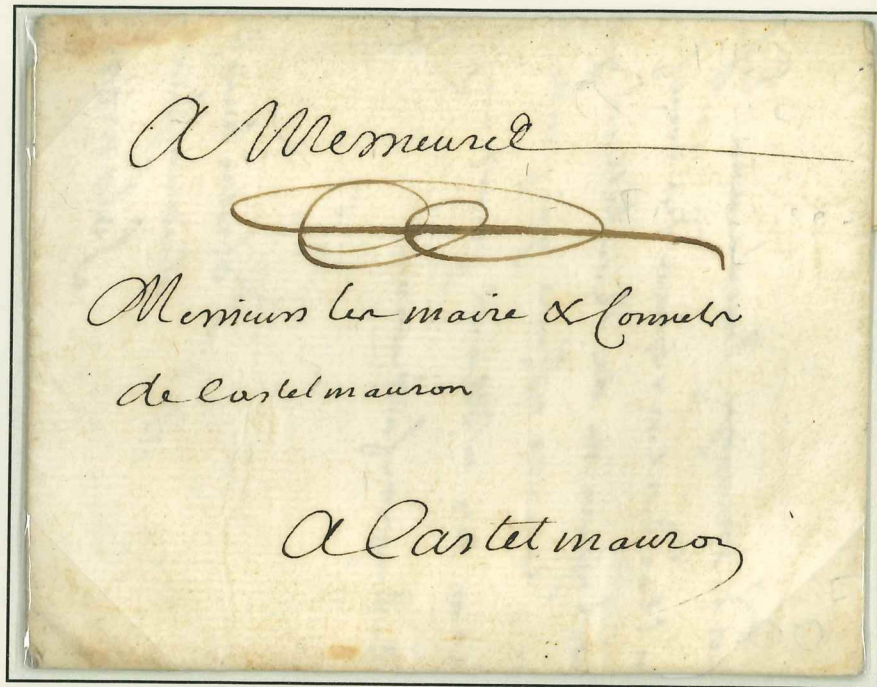 A Messieurs
Messieurs les maire & Consuls
de Castelmauron
A Castelmauron